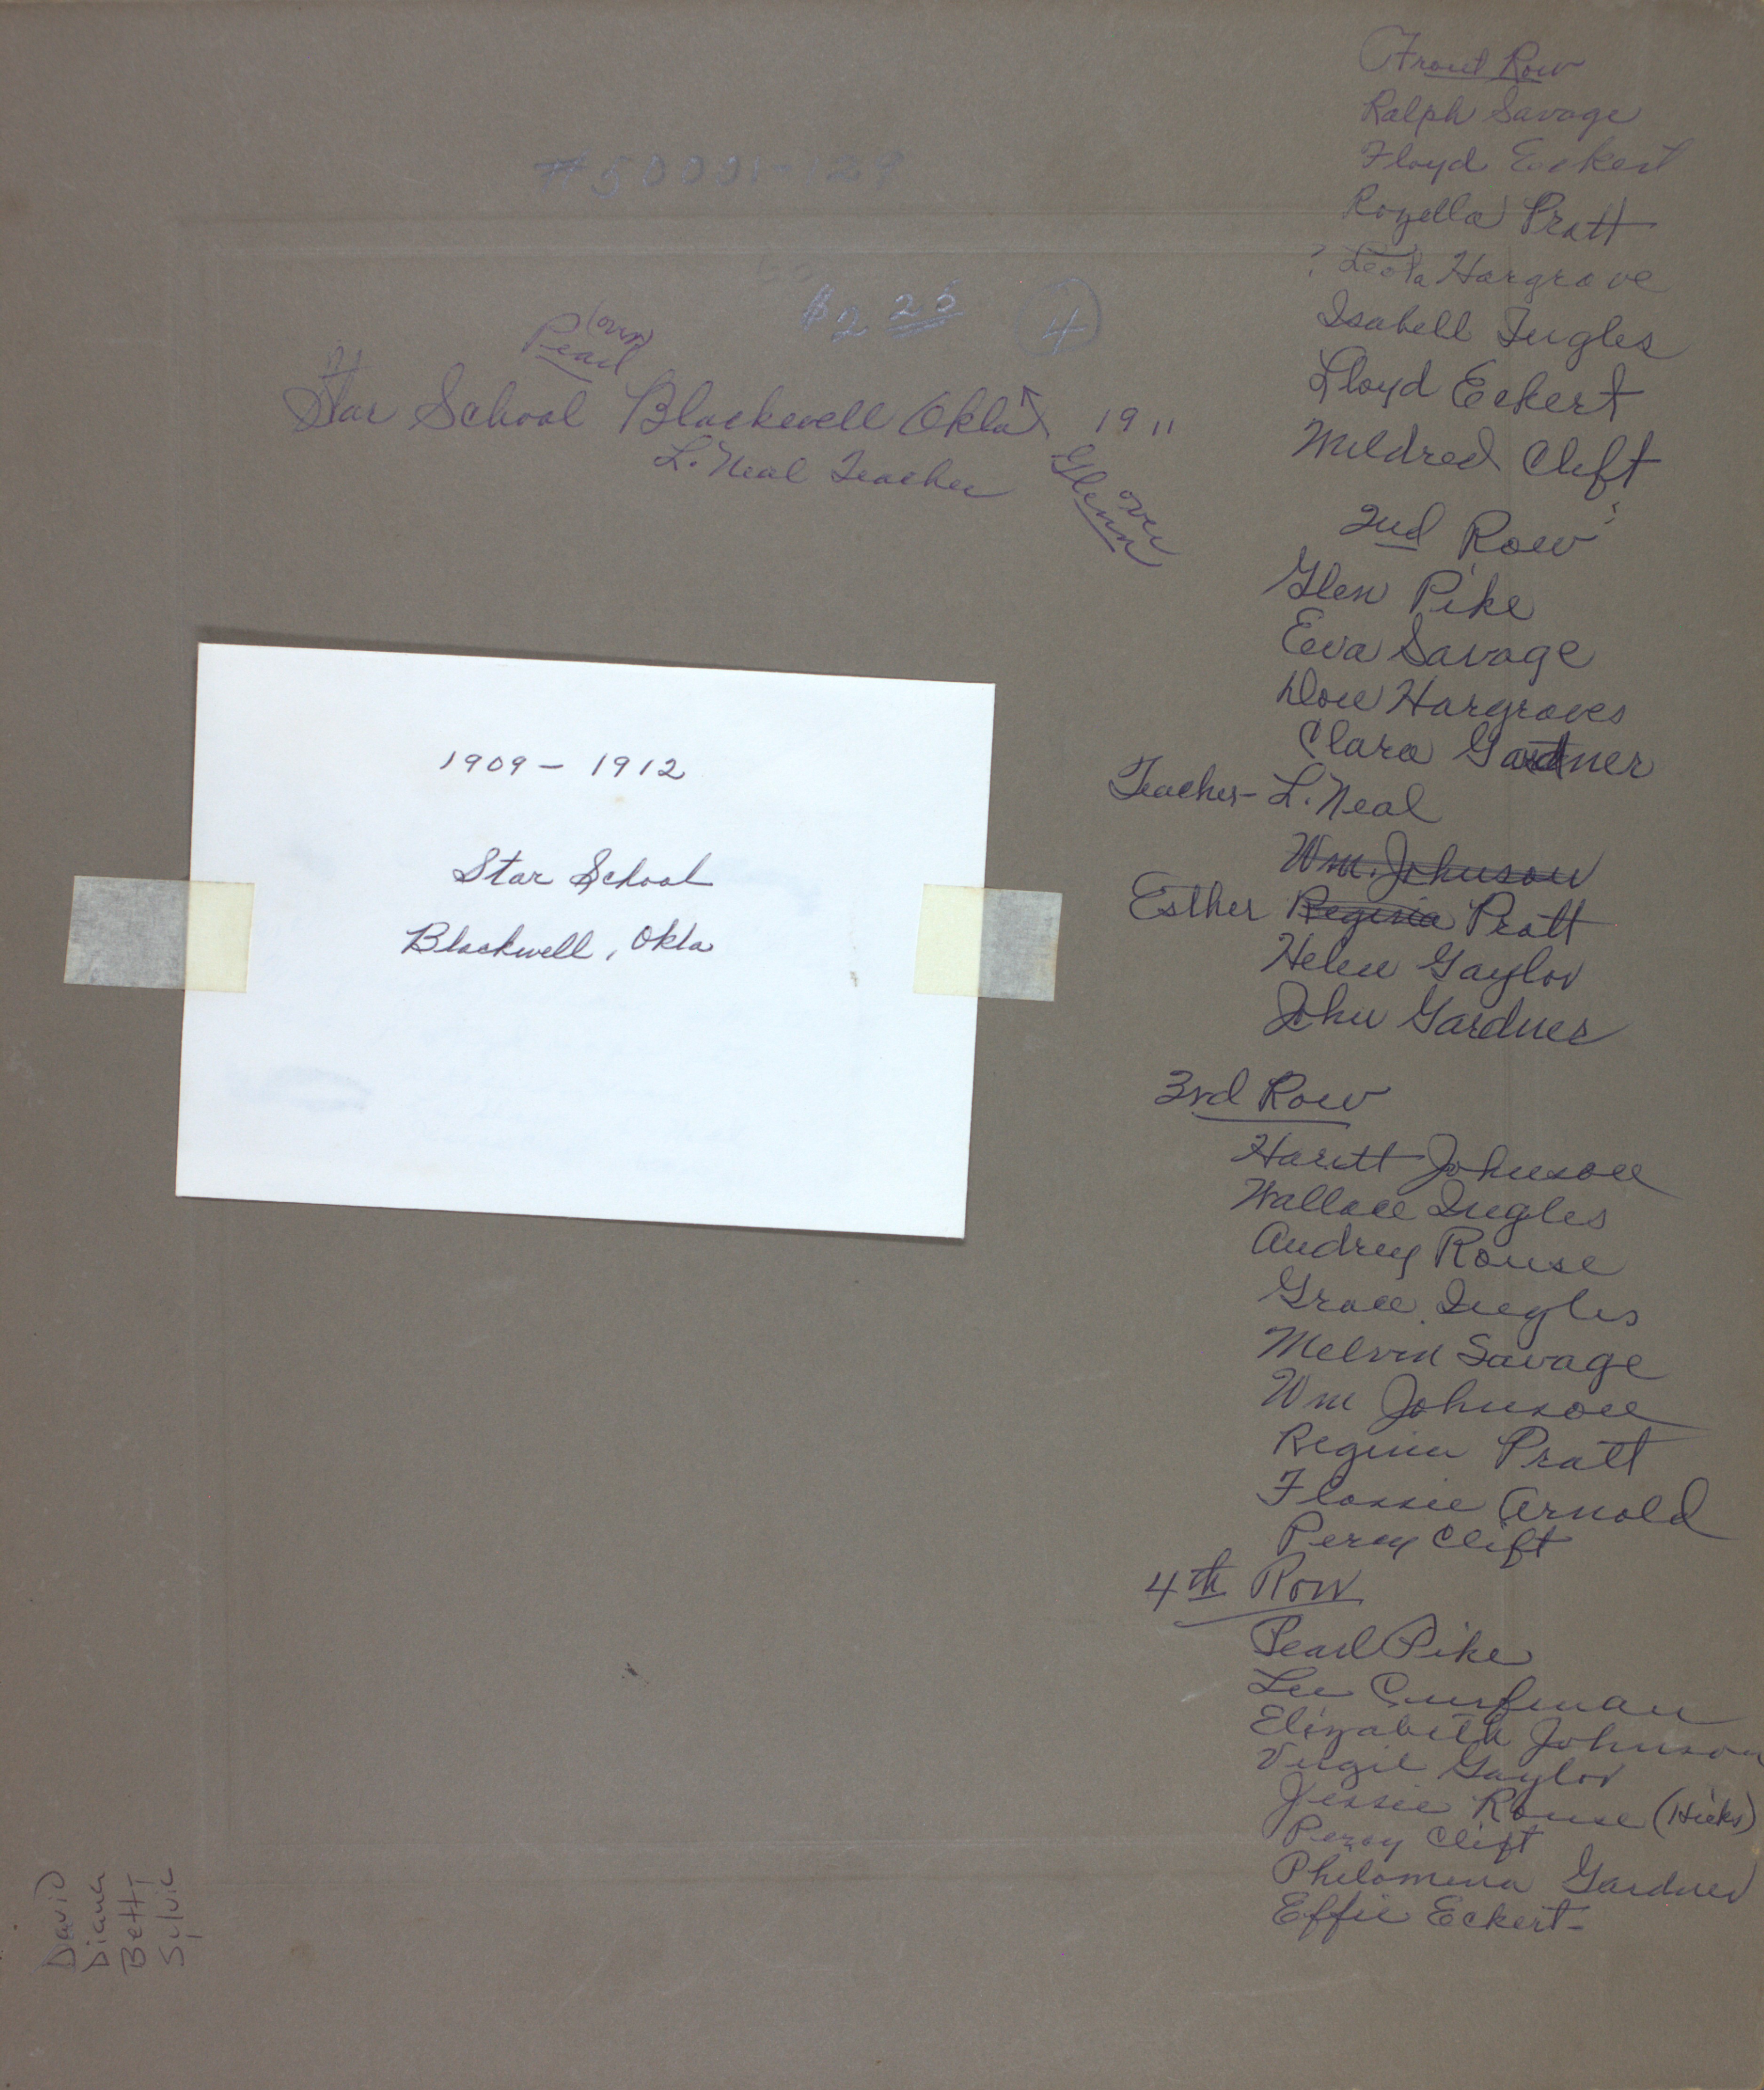 $2 25 (4)
(over)
Pearl
Star School Blackwell Okla 1911
L. Neal Teacher
Glenn
over
1909 - 1912
Star School
Blackwell, Okla
Front Row
Ralph Savage
Floyd Eckert
Rozella Pratt
? Leota Hargrove
Isabell Ingles
Lloyd Eckert
Mildred Clift
2nd Row
Glen Pike
Eva Savage
Don Hargroves
Clara Gardner
Teacher- L. Neal
Wm. Johnson
Esther Regina Pratt
Helen Gaylor
John Gardner
3rd Row
Harett Johnson
Wallace Ingles
Audrey Rouse
Grace Ingles
Melvin Savage
Wm Johnson
Regina Pratt
Flossie Arnold
Percy Clift
4th Row
Pearl Pike
Lee Curfman
Elizabeth Johnson
Virgil Gaylor
Jessie Rouse (Hicks)
Percy Clift
Philomena Gardner
Effie Eckert-
David
Diana
Betti
Sylvie